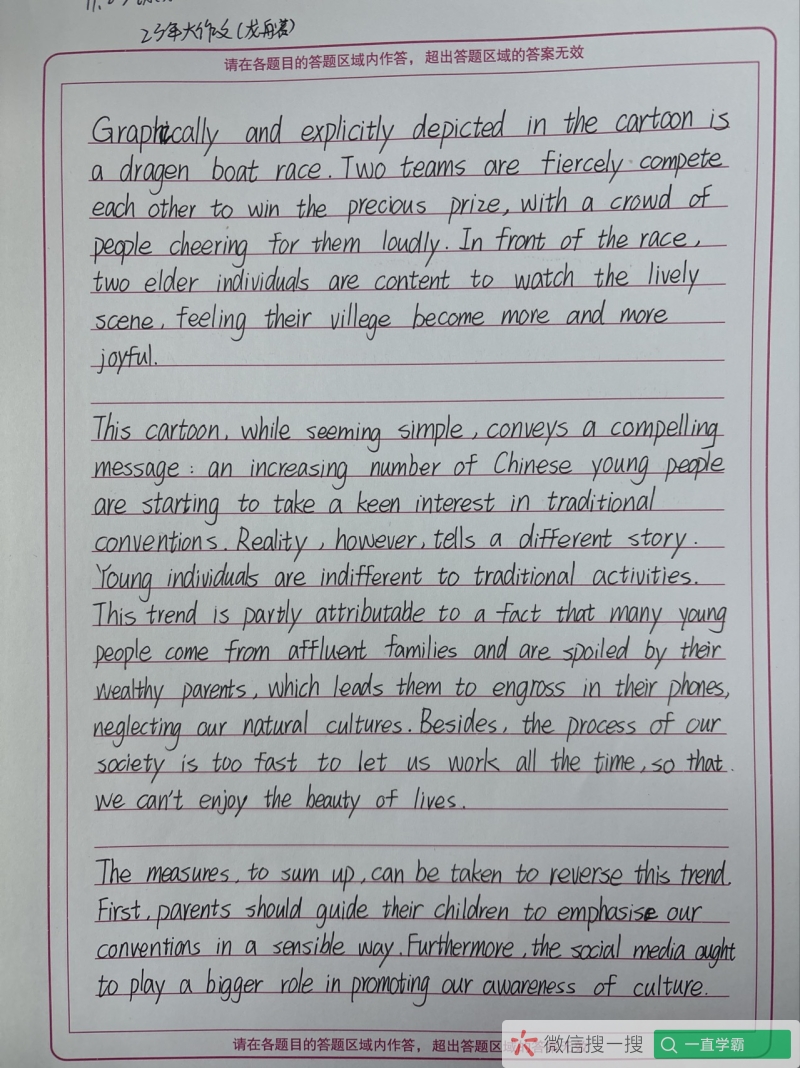 23年大作文(龙舟赛)
请在各题目的答题区域内作答，超出答题区域的答案无效
Graphically and explicitly depicted in the cartoon is
a dragen boat race. Two teams are fiercely compete
each other to win the precious prize, with a crowd of
people cheering for them loudly. In front of the race,
two elder individuals are content to watch the lively
scene, feeling their villege become more and more
joyful.
This cartoon, while seeming simple, conveys a compelling
message: an increasing number of Chinese young people
are starting to take a keen interest in traditional
conventions. Reality, however, tells a different story.
Young individuals are indifferent to traditional activities.
This trend is partly attributable to a fact that many young
people come from affluent families and are spoiled by their
wealthy parents, which leads them to engross in their phones,
neglecting our natural cultures. Besides, the process of our
society is too fast to let us work all the time, so that
we can't enjoy the beauty of lives.
The measures, to sum up, can be taken to reverse this trend.
First, parents should guide their children to emphasise our
conventions in a sensible way. Furthermore, the social media ought
to play a bigger role in promoting our awareness of culture.
请在各题目的答题区域内作答，超出答题区
微信搜一搜
一直学霸